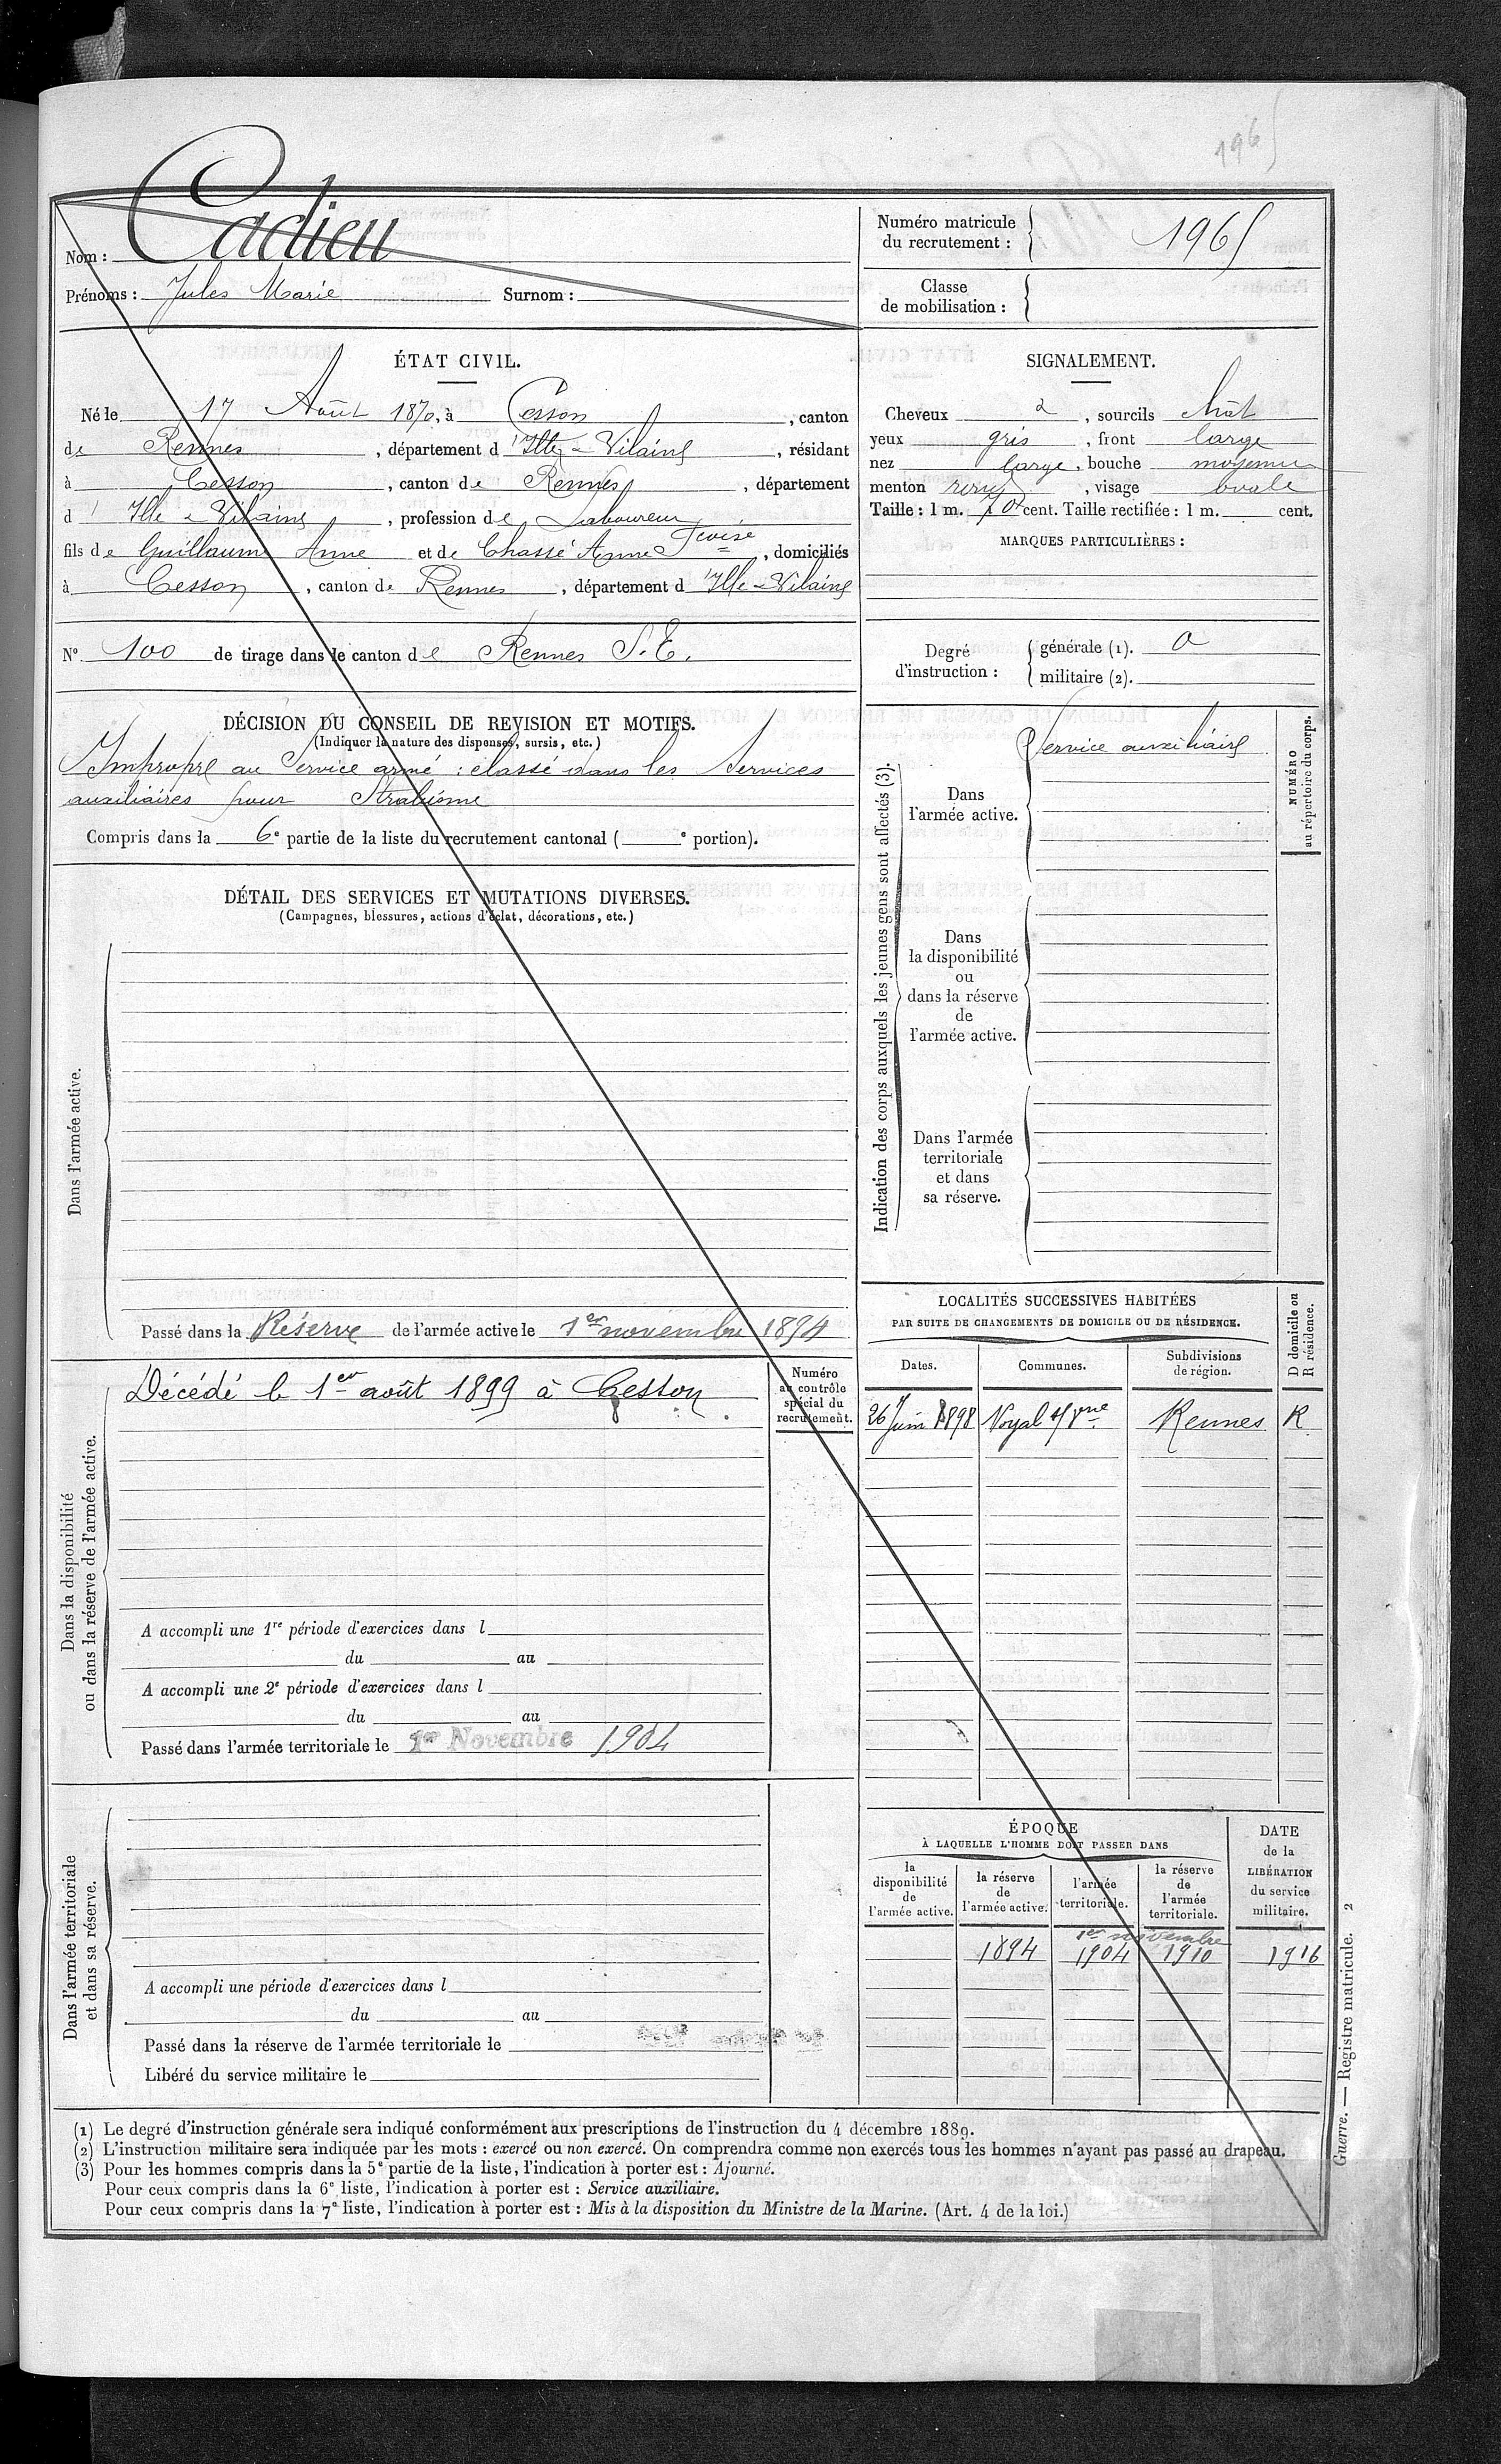 1965
Nom : Cadieu
Prénoms : Jules Marie Surnom :
Numéro matricule du recrutement : 1965
Classe de mobilisation :
ÉTAT CIVIL.
Né le 17 Août 1870, à Cesson, canton
de Rennes, département d'Ille-&-Vilaine, résidant
à Cesson, canton de Rennes, département
d'Ille & Vilaine, profession de Laboureur
fils de Guillaume Anne et de Chassé Anne, domiciliés
à Cesson, canton de Rennes, département d'Ille-Vilaine
N° 100 de tirage dans le canton de Rennes S. E.
SIGNALEMENT.
Cheveux, sourcils chât
yeux gris, front large
nez large, bouche moyenne
menton rond, visage ovale
Taille : 1 m. 70 cent. Taille rectifiée : 1 m. cent.
MARQUES PARTICULIÈRES :
Degré d'instruction :
générale (1). 0
militaire (2).
DÉCISION DU CONSEIL DE REVISION ET MOTIFS.
(Indiquer la nature des dispenses, sursis, etc.)
Impropre au Service armé : classé dans les Services
auxiliaires pour Strabisme
Compris dans la 6e partie de la liste du recrutement cantonal ( e portion).
DÉTAIL DES SERVICES ET MUTATIONS DIVERSES.
(Campagnes, blessures, actions d'éclat, décorations, etc.)
Dans l'armée active.
Passé dans la Réserve de l'armée active le 1er novembre 1894
Indication des corps auxquels les jeunes gens sont affectés (3).
Dans
l'armée active.
Service auxiliaire
NUMÉRO
au répertoire du corps.
Dans
la disponibilité
ou
dans la réserve
de
l'armée active.
Dans l'armée
territoriale
et dans
sa réserve.
Dans la disponibilité
ou dans la réserve de l'armée active.
Décédé le 1er août 1899 à Cesson
Numéro
au contrôle
spécial du
recrutement.
A accompli une 1re période d'exercices dans l
du au
A accompli une 2e période d'exercices dans l
du au
Passé dans l'armée territoriale le 1er Novembre 1904
LOCALITÉS SUCCESSIVES HABITÉES
PAR SUITE DE CHANGEMENTS DE DOMICILE OU DE RÉSIDENCE.
Dates. Communes. Subdivisions de région.
D domicile ou
R résidence.
26 Juin 1898 Noyal s/ Vne Rennes R
Dans l'armée territoriale
et dans sa réserve.
A accompli une période d'exercices dans l
du au
Passé dans la réserve de l'armée territoriale le
Libéré du service militaire le
ÉPOQUE
À LAQUELLE L'HOMME DOIT PASSER DANS
la
disponibilité
de
l'armée active.
la réserve
de
l'armée active.
l'armée
territoriale.
la réserve
de
l'armée
territoriale.
DATE
de la
LIBÉRATION
du service
militaire.
1er novembre
1894 1904 1910 1916
(1) Le degré d'instruction générale sera indiqué conformément aux prescriptions de l'instruction du 4 décembre 1889.
(2) L'instruction militaire sera indiquée par les mots : exercé ou non exercé. On comprendra comme non exercés tous les hommes n'ayant pas passé au drapeau.
(3) Pour les hommes compris dans la 5e partie de la liste, l'indication à porter est : Ajourné.
Pour ceux compris dans la 6e liste, l'indication à porter est : Service auxiliaire.
Pour ceux compris dans la 7e liste, l'indication à porter est : Mis à la disposition du Ministre de la Marine. (Art. 4 de la loi.)
Guerre. — Registre matricule. 2